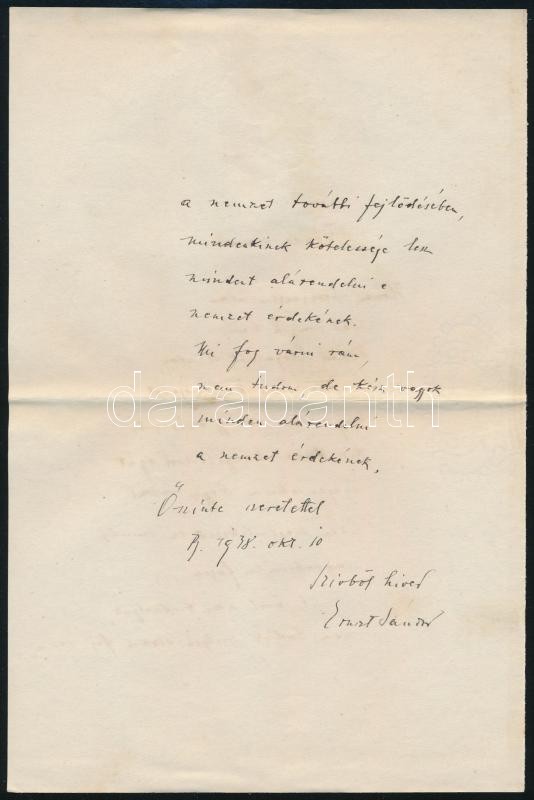 a nemzet további fejlődésében,
mindenkinek kötelessége lesz
mindent alárendelni e
nemzet érdekének.
Mi fog várni rám,
nem tudom, de kész vagyok
darabanth
minden alárendelni
a nemzet érdekének,
Őszinte szeretettel
1938. okt. 10
Szivből hived
Ernszt Sándor